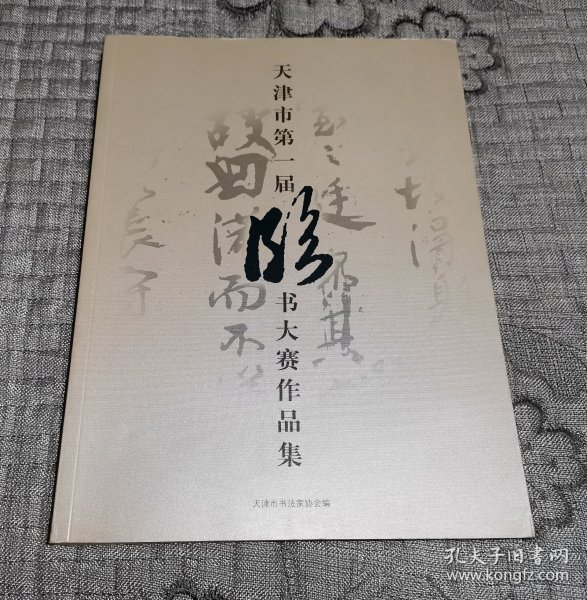 天津市第一届临书大赛作品集
天津市书法家协会编
孔夫子旧书网
www.kongfz.com